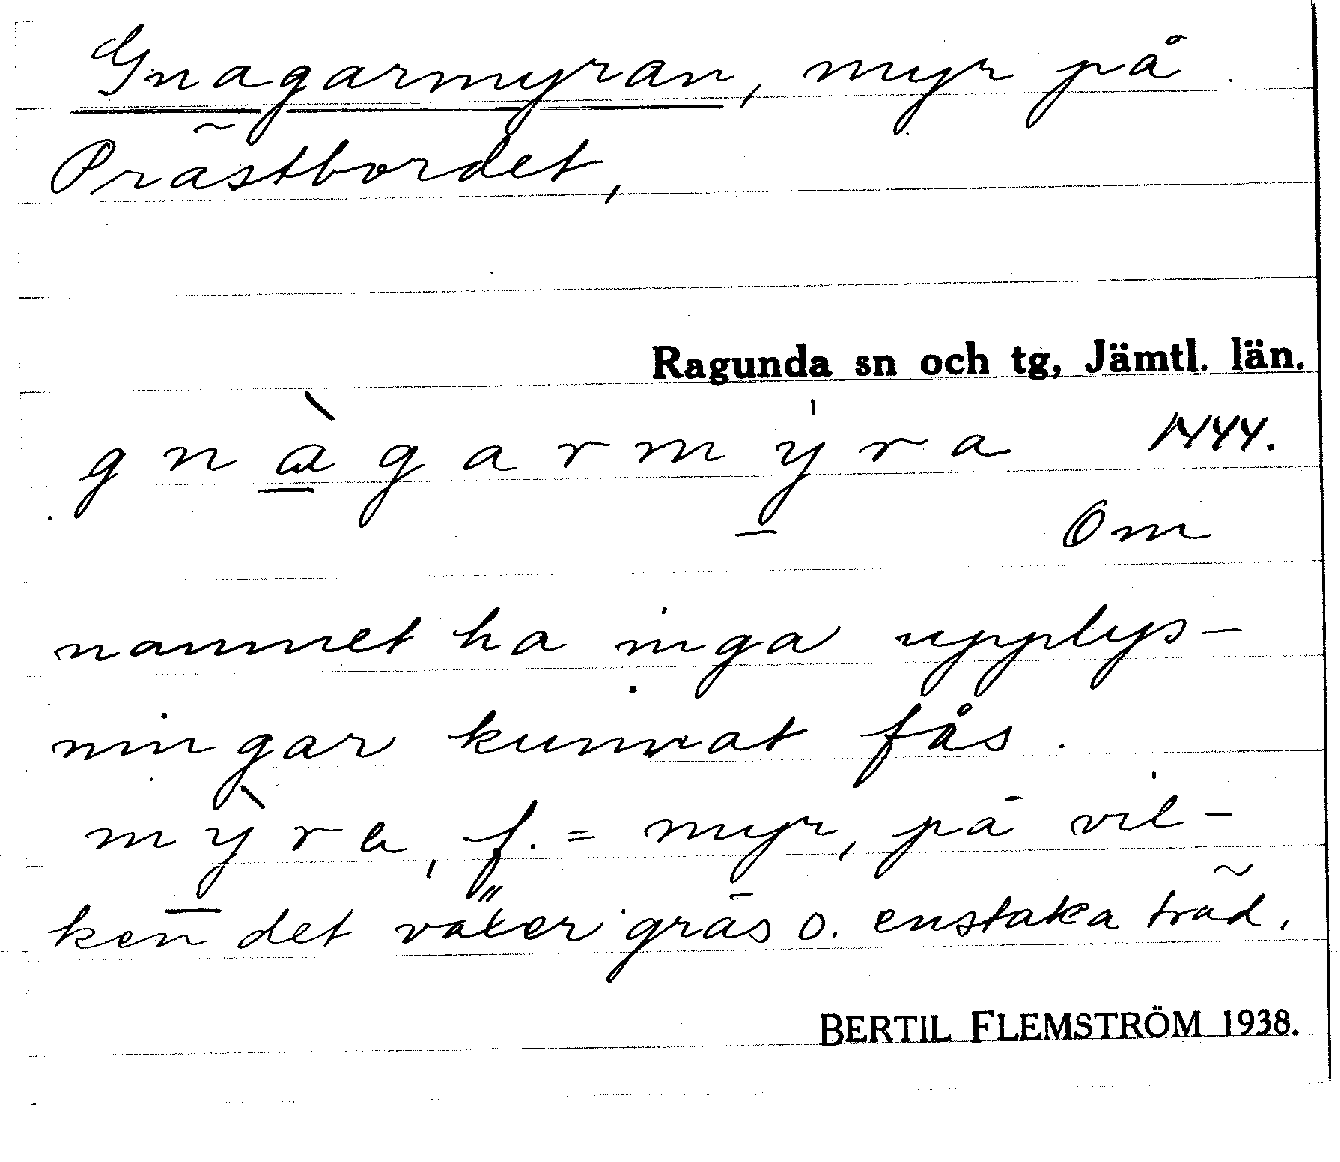 Gnagarmyran, myr på
Prästbordet,
Ragunda sn och tg, Jämtl. län.
gnàgarmýra 1444.
Om
namnet ha inga upplys-
ningar kunnat fås.
mỳra, f. = myr, på vil-
ken det växer gräs o. enstaka träd.
BERTIL FLEMSTRÖM 1938.